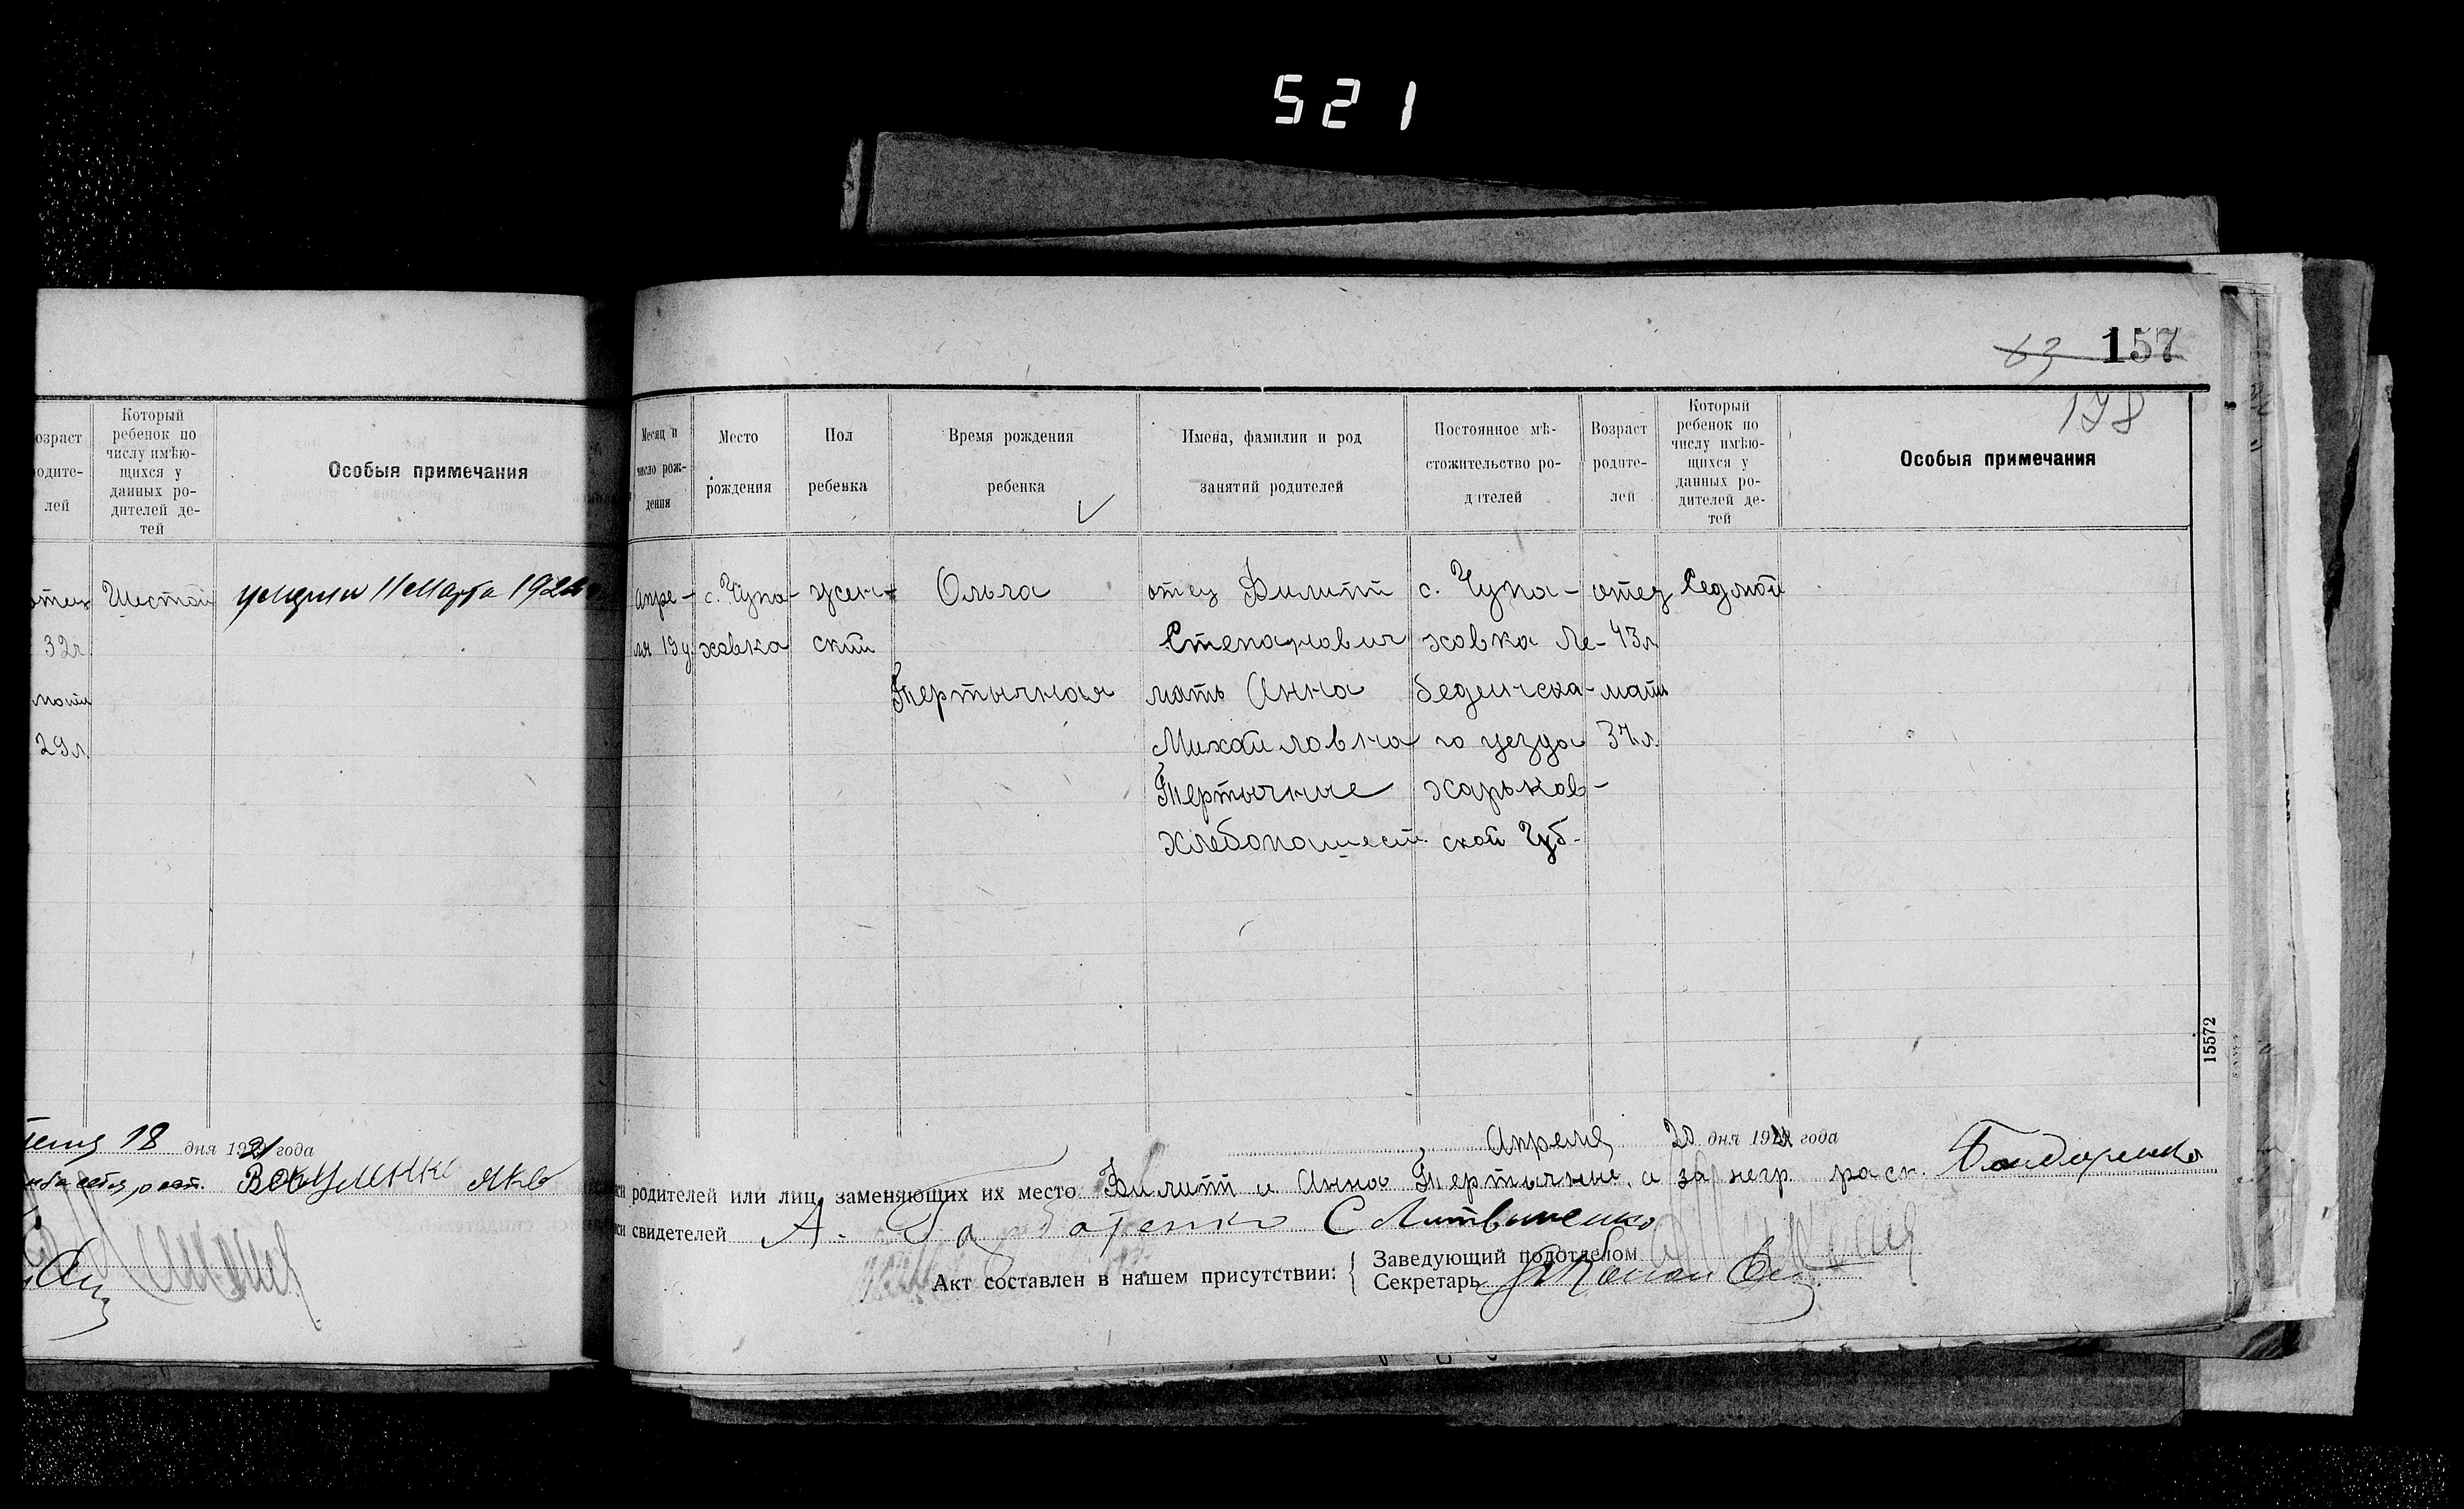 521
63 157
178
озраст
одите-
лей
Который
ребенок по
числу имѣю-
щихся у
данных ро-
дителей де-
тей
Особыя примечания
отец
32г.
мать
29л.
Шестой
умерла 11 Марта 192
18 дня 1921 года
Месяц и
число рож-
дения
Место
рождения
Пол
ребенка
Время рождения
ребенка
Имена, фамилии и род
занятий родителей
Постоянное мѣ-
стожительство ро-
дителей
Возраст
родите-
лей
Который
ребенок по
числу имѣю-
щихся у
данных ро-
дителей де-
тей
Особыя примечания
Апре-
ля 19 д.
с. Чупа-
ховка
женс-
ский
Ольга
Тертычная
отец Филипп
Степанович
мать Анна
Михайловна
Тертычные
хлебопашест.
с. Чупа-
ховка Ле-
бединска-
го уезда
Харьков-
ской Губ.
отец
43л.
мать
37л.
Седмой
15572
Апреля 20 дня 1921 года
родителей или лиц, заменяющих их место Филипп и Анна Тертычные, а за негр. расп. Бондаренко
свидетелей А. С Литвиненко
Акт составлен в нашем присутствии: { Заведующий подотделом
Секретарь